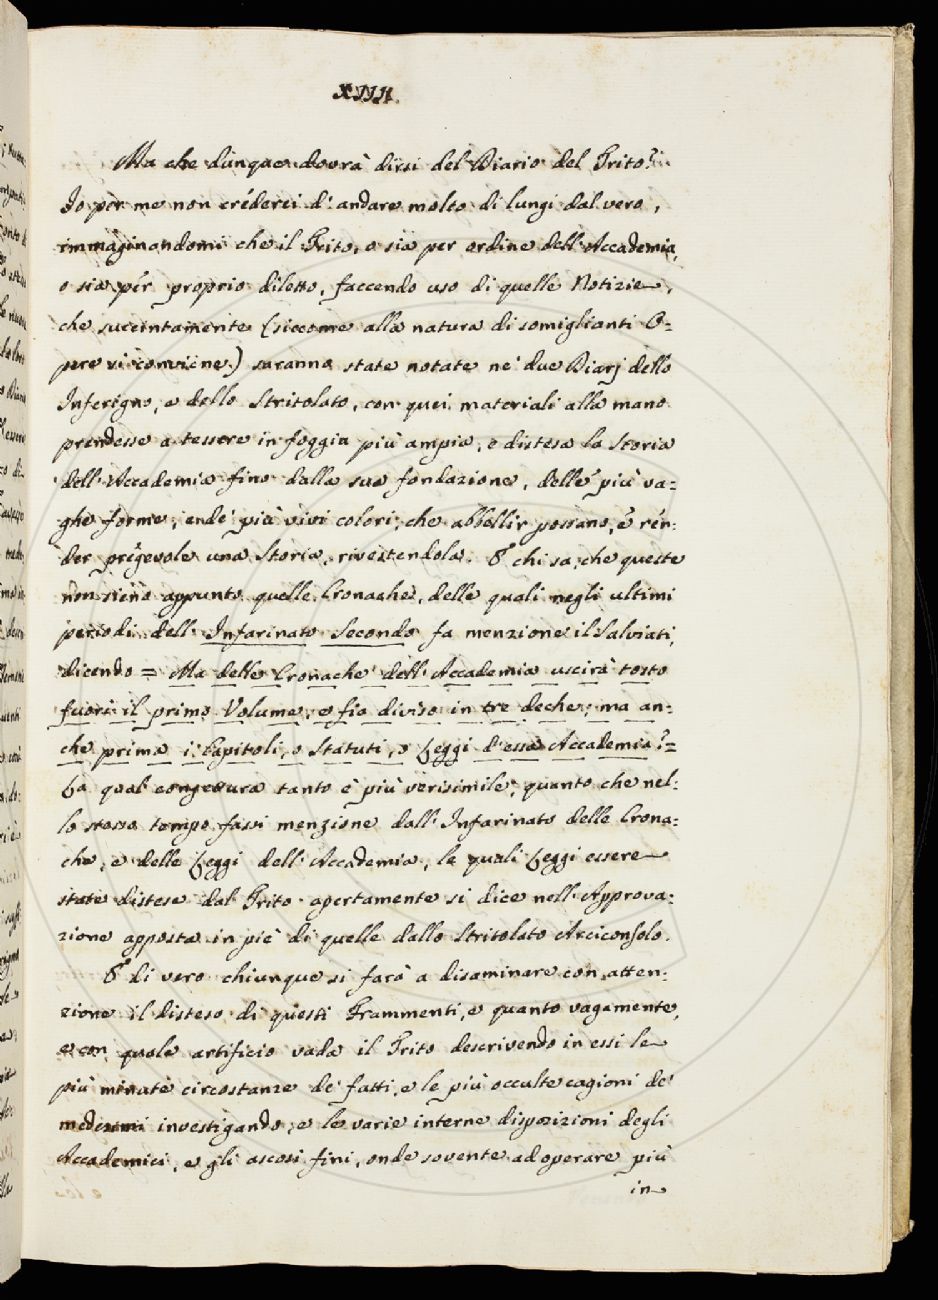 XIII.
Ma che dunque dovrà dirsi del Diario del Trito?
Io per me non créderei d'andare molto di lungi dal vero,
immaginandomi che il Trito, o sia per ordine dell'Accademia,
o sia per proprio diletto, faccendo uso di quelle Notizie,
che succintamente (siccome alla natura di somiglianti O=
pere si conviene) saranno state notate ne' due Diarj dello
Inferigno, e dello Stritolato, con quei materiali alla mano
prendesse a tessere in foggia più ampia, e distesa la Storia
dell'Accademia fino dalla sua fondazione, delle più va=
ghe forme, e ndè più vivi colori, che abbellir possano, è rén:
der prégevole una Storia, rivestendola. E chi sa, che queste
non sieno appunto quelle Cronache, delle quali negli ultimi
periodi dell'Infarinato Secondo fa menzione il Salviati,
dicendo = Ma delle Cronache dell'Accademia uscirà tosto
fuori il primo Volume, e fia diviso in tre deche; ma an=
che prima i Capitoli, o Statuti, o Leggi d'essa Accademia?=
La qual congettura tanto è più verisimile, quanto che nel:
lo stesso tempo fassi menzione dall'Infarinato delle Crona:
che, e delle Leggi dell'Accademia, le quali Leggi essere
state distese dal Trito apertamente si dice nell'Approva:
zione apposta in piè di quelle dallo Stritolato Arciconsolo.
E di vero chiunque si farà a disaminare con atten:
zione il disteso di questi Frammenti, e quanto vagamente,
e con quale artificio vada il Trito descrivendo in essi le
più minute circostanze de' fatti, e le più occulte cagioni de'
medesimi investigando, e le varie interne disposizioni degli
Accademici, e gli ascosi fini, onde sovente ad operare più
in